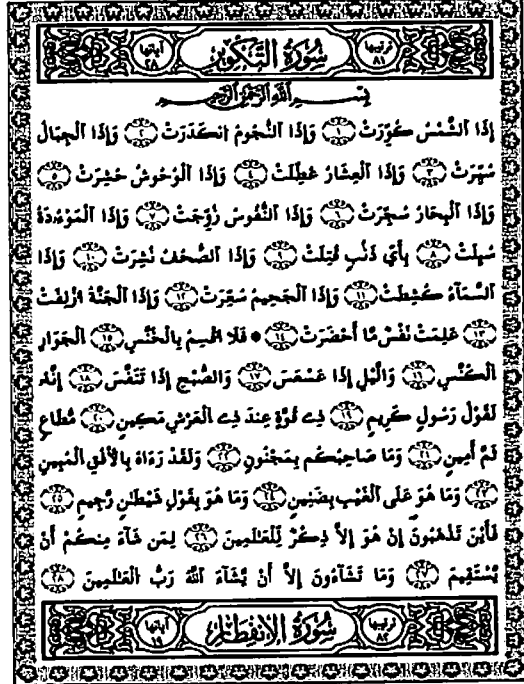 ترتيبها ٨١ سُورَةُ التَّكْوِيرِ آياتها ٢٨
بِسْمِ اللَّهِ الرَّحْمَٰنِ الرَّحِيمِ
إِذَا اَلشَّمْسُ كُوِّرَتْ ١ وَإِذَا اَلنُّجُومُ اُنكَدَرَتْ ٢ وَإِذَا اَلْجِبَالُ
سُيِّرَتْ ٣ وَإِذَا اَلْعِشَارُ عُطِّلَتْ ٤ وَإِذَا اَلْوُحُوشُ حُشِرَتْ ٥
وَإِذَا اَلْبِحَارُ سُجِّرَتْ ٦ وَإِذَا اَلنُّفُوسُ زُوِّجَتْ ٧ وَإِذَا اَلْمَوْءُۥدَةُ
سُئِلَتْ ٨ بِأَيِّ ذَنۢبٍ قُتِلَتْ ٩ وَإِذَا اَلصُّحُفُ نُشِرَتْ ١٠ وَإِذَا
اَلسَّمَآءُ كُشِطَتْ ١١ وَإِذَا اَلْجَحِيمُ سُعِّرَتْ ١٢ وَإِذَا اَلْجَنَّةُ أُزْلِفَتْ
١٣ عَلِمَتْ نَفْسٌ مَّا أَحْضَرَتْ ١٤ * فَلَا أُقْسِمُ بِالْخُنَّسِ ١٥ اِلْجَوَارِ
اِلْكُنَّسِ ١٦ وَالَّيْلِ إِذَا عَسْعَسَ ١٧ وَالصُّبْحِ إِذَا تَنَفَّسَ ١٨ إِنَّهُۥ
لَقَوْلُ رَسُولٍ كَرِيمٍ ١٩ ذِے قُوَّةٍ عِندَ ذِے اِلْعَرْشِ مَكِينٍ ٢٠ مُّطَاعٍ
ثَمَّ أَمِينٍ ٢١ وَمَا صَاحِبُكُم بِمَجْنُونٍ ٢٢ وَلَقَدْ رَءَاهُ بِالْأُفُقِ اِلْمُبِينِ
٢٣ وَمَا هُوَ عَلَى اَلْغَيْبِ بِضَنِينٍ ٢٤ وَمَا هُوَ بِقَوْلِ شَيْطَٰنٍ رَّجِيمٍ ٢٥
فَأَيْنَ تَذْهَبُونَ إِنْ هُوَ إِلَّا ذِكْرٌ لِّلْعَٰلَمِينَ ٢٦ لِمَن شَآءَ مِنكُمْ أَنْ
يَّسْتَقِيمَ ٢٧ وَمَا تَشَآءُونَ إِلَّا أَنْ يَّشَآءَ اَللَّهُ رَبُّ اُلْعَٰلَمِينَ ٢٨
ترتيبها ٨٢ سُورَةُ الِانْفِطَارِ آياتها ١٩